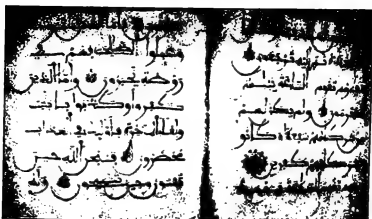 ويوم تقوم الساعة يبلس
المجرمون ولم يكن لهم
من شركائهم شفعؤا وكانوا
بشركائهم كفرين
ويوم تقوم الساعة
وعملوا الصلحت فهم في
روضة يحبرون وأما الذين
كفروا وكذبوا بايتنا
ولقاء الاخرة فأولئك في العذاب
محضرون فسبحن الله حين
تمسون وحين تصبحون وله